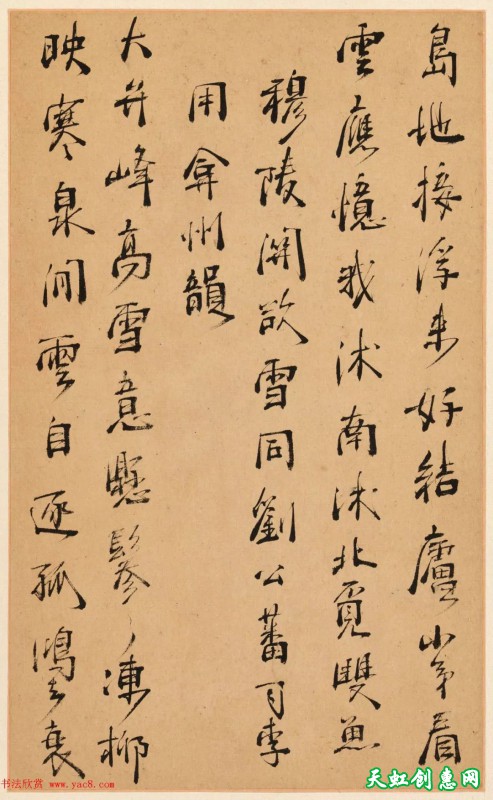 島地接浮來好結廬小弟看
雲應憶我沭南沭北覓雙魚
穆陵關欲雪同劉公蕃司李
用弇州韻
大弁峰高雪意懸鬖鬖凍柳
映寒泉閒雲自逐孤鴻去
书法欣赏 www.yac8.com
天虹创惠网